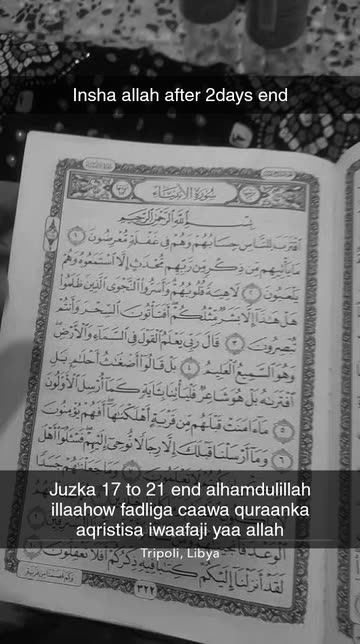 Insha allah after 2days end
سُورَةُ الأَنبِيَاءِ
بِسْمِ اللَّهِ الرَّحْمَٰنِ الرَّحِيمِ
ٱقْتَرَبَ لِلنَّاسِ حِسَابُهُمْ وَهُمْ فِى غَفْلَةٍ مُّعْرِضُونَ ١
مَا يَأْتِيهِم مِّن ذِكْرٍ مِّن رَّبِّهِم مُّحْدَثٍ إِلَّا ٱسْتَمَعُوهُ وَهُمْ
يَلْعَبُونَ ٢ لَاهِيَةً قُلُوبُهُمْ وَأَسَرُّوا۟ ٱلنَّجْوَى ٱلَّذِينَ ظَلَمُوا۟
هَلْ هَٰذَآ إِلَّا بَشَرٌ مِّثْلُكُمْ أَفَتَأْتُونَ ٱلسِّحْرَ وَأَنتُمْ
تُبْصِرُونَ ٣ قَالَ رَبِّى يَعْلَمُ ٱلْقَوْلَ فِى ٱلسَّمَآءِ وَٱلْأَرْضِ
وَهُوَ ٱلسَّمِيعُ ٱلْعَلِيمُ ٤ بَلْ قَالُوٓا۟ أَضْغَٰثُ أَحْلَٰمٍ بَلِ
ٱفْتَرَىٰهُ بَلْ هُوَ شَاعِرٌ فَلْيَأْتِنَا بِـَٔايَةٍ كَمَآ أُرْسِلَ ٱلْأَوَّلُونَ
٥ مَآ ءَامَنَتْ قَبْلَهُم مِّن قَرْيَةٍ أَهْلَكْنَٰهَآ أَفَهُمْ يُؤْمِنُونَ
٦ وَمَآ أَرْسَلْنَا قَبْلَكَ إِلَّا رِجَالًا نُّوحِىٓ إِلَيْهِمْ فَسْـَٔلُوٓا۟ أَهْلَ
وَمَا جَعَلْنَٰهُمْ جَسَدًا
Juzka 17 to 21 end alhamdulillah
illaahow fadliga caawa quraanka
aqristisa iwaafaji yaa allah
Tripoli, Libya
لَقَدْ أَنزَلْنَآ إِلَيْكُمْ كِتَٰبًا فِيهِ ذِكْرُكُمْ أَفَلَا تَعْقِلُونَ
٣٢٢